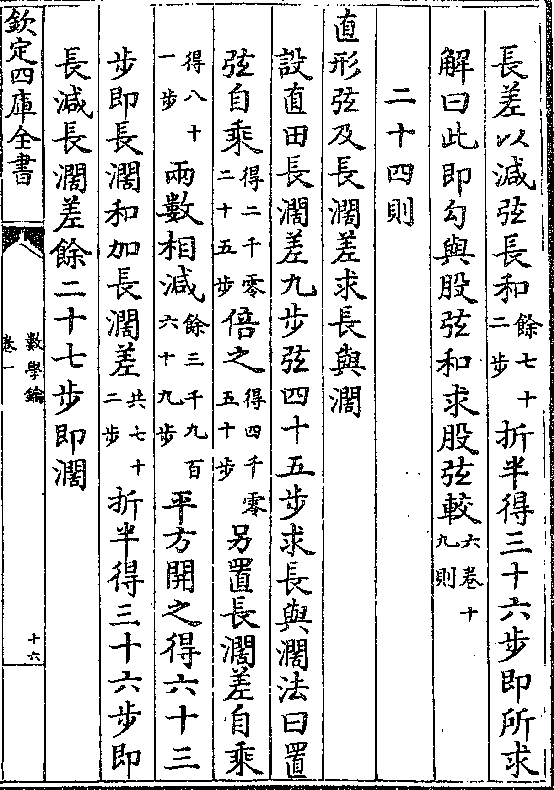 長差以減弦長和餘七十二步折半得三十六步即所求
解曰此即勾與股弦和求股弦較六卷十九則
二十四則
直形弦及長濶差求長與濶
設直田長濶差九步弦四十五步求長與濶法曰置
弦自乘得二千零二十五步倍之得四千零五十步另置長濶差自乘
得八十一步兩數相減餘三千九百六十九步平方開之得六十三
步即長濶和加長濶差共七十二步折半得三十六步即
長減長濶差餘二十七步即濶
欽定四庫全書
數學鑰
卷一
十六